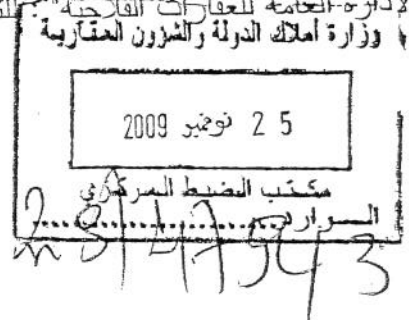 الإدارة العامة للعقارات الفلاحية
وزارة أملاك الدولة والشؤون العقارية
2 5 نوفمبر 2009
مكتب الضبط المركزي
السوارد